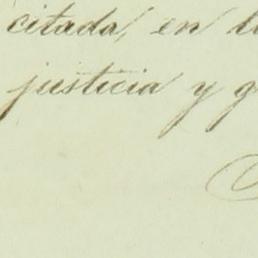 citada, en
justicia y